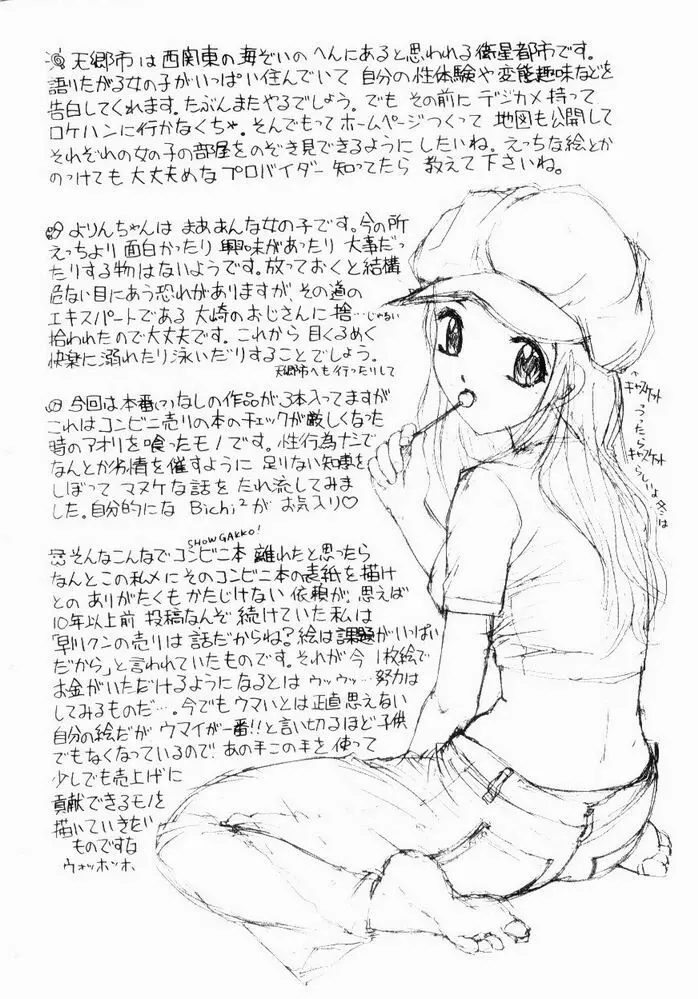 天郷市は西関東の海ぞいのへんにあると思われる衛星都市です。
語りたがる女の子がいっぱい住んでいて 自分の性体験や変態趣味などを
告白してくれます。たぶんまたやるでしょう。でも その前に デジカメ持って
ロケハンに行かなくちゃ。そんでもってホームページつくって 地図も公開して
それぞれの女の子の部屋をのぞき見できるようにしたいね。えっちな絵とか
のっけても大丈夫めなプロバイダー知ってたら 教えて下さいね。
よりんちゃんは まああんな女の子です。今の所
えっちより 面白かったり 興味があったり 大事だっ
たりする物はないようです。放っておくと結構
危ない目にあう恐れがありますが、その道の
エキスパートである 大崎のおじさんに 捨…じゃない
拾われたので大丈夫です。これから目くるめく
快楽に溺れたり泳いだりすることでしょう。
天郷市へも行ったりして
今回は本番(?)なしの作品が3本入ってますが
これはコンビニ売りの本のチェックが厳しくなった
時のアオリを喰ったモノです。性行為なしで
なんとかお情を催すように 足りない知恵を
しぼって マヌケな話を たれ流してみま
した。自分的には Bichi²が お気入り♡
SHOWGAKKO!
そんなこんなでコンビニ本 離れたと思ったら
なんとこの私メにそのコンビニ本の表紙を描け
との ありがたくもかたじけない 依頼が。思えば
10年以上前 投稿なんぞ 続けていた私は
「早リクンの売りは 話だからね?絵は課題がいっぱい
だから」と言われていたものです。それが今 1枚絵で
お金がいただけるようになるとは ウッウッ…努力は
してみるものだ…。今でもウマいとは正直思えない
自分の絵だが ウマイが一番!!と言い切るほど子供
でもなくなっているので あの手この手を使って
少しでも売上げに
貢献できるモノを
描いていきたい
ものですな
ウォッホッホ
キャスケット
うったら
キャスケット
らしいよ 冬は